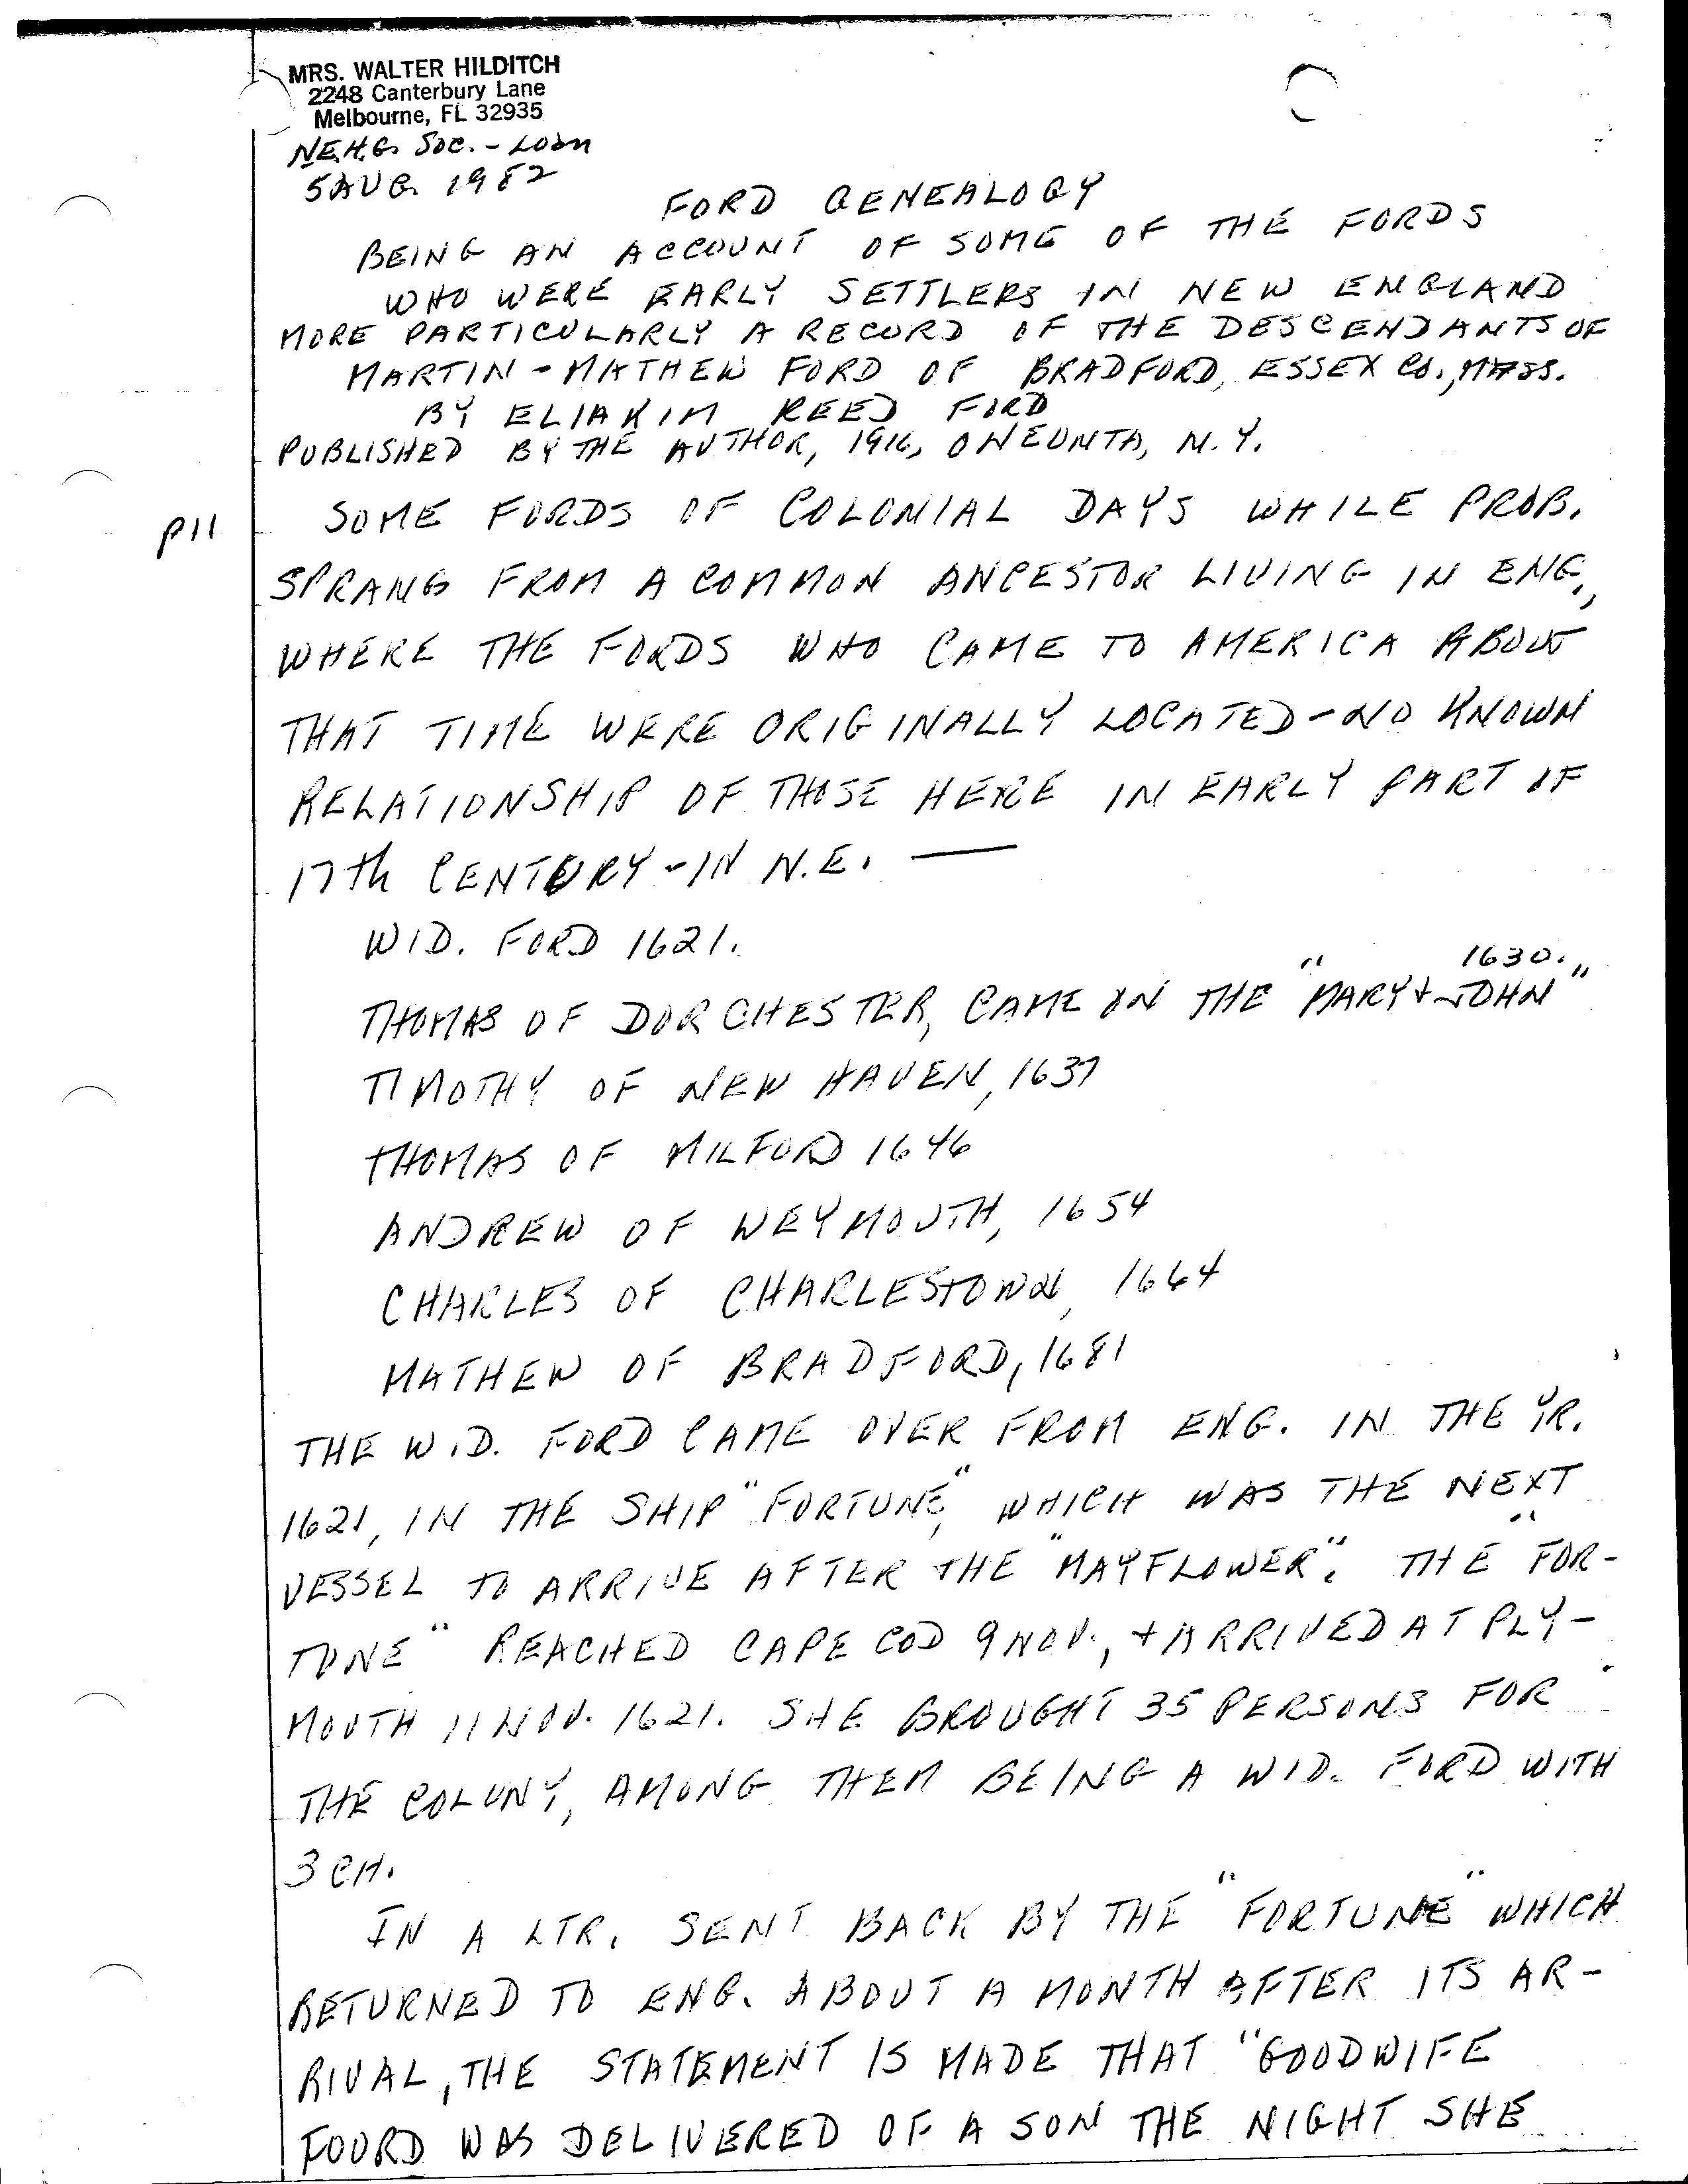 MRS. WALTER HILDITCH
2248 Canterbury Lane
Melbourne, FL 32935
N.E.H.G. SOC. - LOAN
5 AUG. 1982
FORD GENEALOGY
BEING AN ACCOUNT OF SOME OF THE FORDS
WHO WERE EARLY SETTLERS IN NEW ENGLAND
MORE PARTICULARLY A RECORD OF THE DESCENDANTS OF
MARTIN - MATHEW FORD OF BRADFORD, ESSEX CO., MASS.
BY ELIAKIM REED FORD
PUBLISHED BY THE AUTHOR, 1916, ONEONTA, N.Y.
P11 SOME FORDS OF COLONIAL DAYS WHILE PROB.
SPRANG FROM A COMMON ANCESTOR LIVING IN ENG.,
WHERE THE FORDS WHO CAME TO AMERICA ABOUT
THAT TIME WERE ORIGINALLY LOCATED - NO KNOWN
RELATIONSHIP OF THOSE HERE IN EARLY PART OF
17th CENTURY - IN N.E. —
WID. FORD 1621.
1630.
THOMAS OF DORCHESTER, CAME ON THE "MARY + JOHN"
TIMOTHY OF NEW HAVEN, 1637
THOMAS OF MILFORD 1646
ANDREW OF WEYMOUTH, 1654
CHARLES OF CHARLESTOWN, 1664
MATHEW OF BRADFORD, 1681
THE WID. FORD CAME OVER FROM ENG. IN THE YR.
1621, IN THE SHIP "FORTUNE", WHICH WAS THE NEXT
VESSEL TO ARRIVE AFTER THE "MAYFLOWER". THE "FOR-
TUNE" REACHED CAPE COD 9 NOV., + ARRIVED AT PLY-
MOUTH 11 NOV. 1621. SHE BROUGHT 35 PERSONS FOR
THE COLONY, AMONG THEM BEING A WID. FORD WITH
3 CH.
IN A LTR. SENT BACK BY THE "FORTUNE" WHICH
RETURNED TO ENG. ABOUT A MONTH AFTER ITS AR-
RIVAL, THE STATEMENT IS MADE THAT "GOODWIFE
FOURD WAS DELIVERED OF A SON THE NIGHT SHE